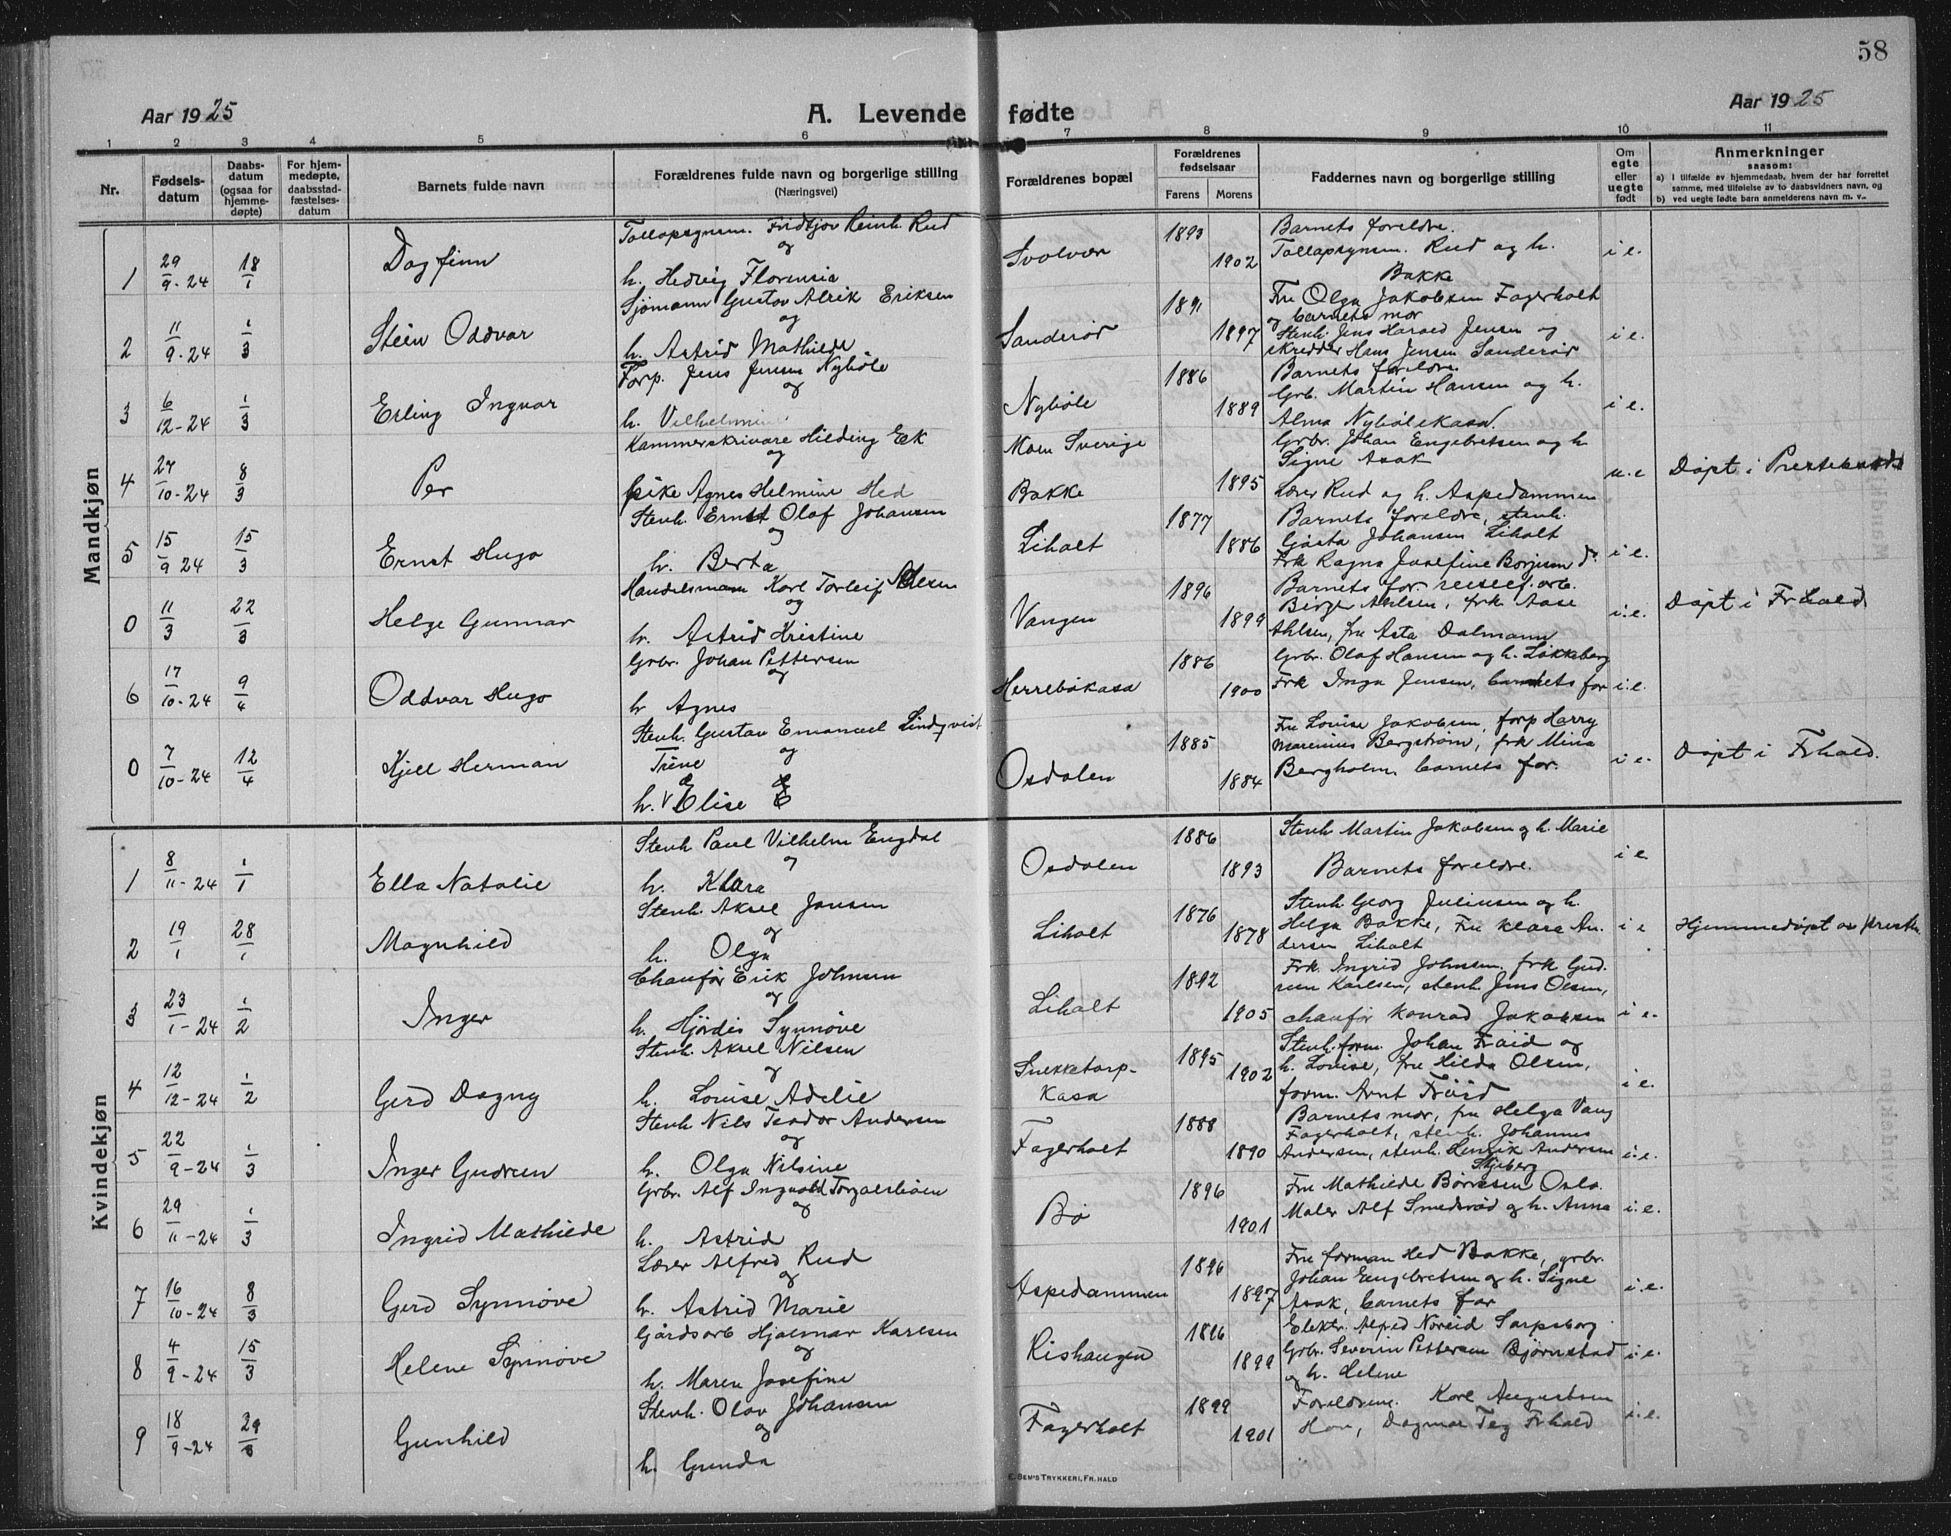 58
Aar 1925 A. Levende fødte Aar 1925
1 2 3 4 5 6 7 8 9 10 11
Nr. Fødsels-datum Daabs-datum (ogsaa for hjemme-døpte) For hjem-medøpte, daabsstad-fæstelses-datum Barnets fulde navn Forældrenes fulde navn og borgerlige stilling (Næringsvei) Forældrenes bopæl Forældrenes fødselsaar Farens Morens Faddernes navn og borgerlige stilling Om egte eller uegte født Anmerkninger saasom: a) I tilfælde av hjemmedaab, hvem der har forrettet samme, med tilføielse av to daabsvidners navn, og b) ved uegte fødte barn anmelderens navn m. v.
Mandkjøn
1 29/9-24 18/1 Dagfinn Tollopsynsm. Fridtjov Reinh. Rud og h. Hedvig Florensia Svolvær 1893 1902 Barnets foreldre. Tollopsynsm. Rud og h. Bakke i e.
2 11/9-24 1/3 Stein Oddvar Sjømann Gustav Alrik Eriksen og h. Astrid Mathilde Sanderød 1891 1897 Fru Olga Jakobsen Fagerholt og barnets mor Stenh. Jens Harald Jensen og skredder Hans Jensen Sanderød i e.
3 6/12-24 1/3 Erling Ingvar Forp. Jens Jensen Nybøle og h. Vilhelmine Nybøle 1886 1889 Barnets foreldre. Grb. Martin Hansen og h. Alma Nybølekasa. i e.
4 27/10-24 8/3 Per Kammerskrivare Hilding Eek og pike Agnes Helmine Hed Moen Sverige Bakke 1895 Grbr. Johan Engebretsen og h Signe Asak Lærer Rud og h. Aspedammen u.e Døpt i Prestebakke
5 15/9 24 15/3 Ernst Hugo Stenh. Ernst Olaf Johansen og h. Berta Liholt 1877 1886 Barnets foreldre, stenh. Gøsta Johansen Liholt Frk Ragna Josefine Børjesen do i e.
0 11/3 22/3 Helge Gunnar Handelsmann Karl Torleif Olsen og h. Astrid Kristine Vangen 1896 1899 Barnets for. reisef. arb. Birger Ahlsen, frk Aase Ahlsen, fru Asta Dalmann i.e. Døpt i Frhald
6 17/10-24 9/4 Oddvar Hugo Grbr. Johan Pettersen og h Agnes Herrebøkasa 1886 1900 Grbr. Olaf Hansen og h. Løkkeberg Frk Inga Jensen, barnets far i.e.
0 7/10-24 12/4 Kjell Herman Stenh. Gustav Emanuel Lindqvist og Trine h. Elise Osdalen 1885 1884 Fru Louise Jakobsen, forp Harry Marenius Bergstrøm, frk Mina Bergholm, barnets for. i e. Døpt i Frhald.
Kvindekjøn
1 8/11-24 1/1 Ella Natalie Stenh Paul Vilhelm Engdal og h. Klara Osdalen 1886 1893 Stenh Martin Jakobsen og h. Marie Barnets foreldre. i e
2 19/1 28/1 Magnhild Stenh. Aksel Jansen og h. Olga Liholt 1876 1878 Stenh. Georg Juliusen og h. Helga Bakke, Fru Klara Andersen Liholt i e Hjemmedøpt av presten
3 23/1-24 1/2 Inger Chaufør Erik Johnsen og h. Hjördis Synnøve Liholt 1892 1905 Frk. Ingrid Johnsen, frk Gudrun Karlsen, stenh. Jens Olsen, chaufør Konrad Jakobsen i e.
4 12/12-24 1/2 Gerd Dagny Stenh. Aksel Nilsen og h. Louise Adelie Snekketorp-kasa 1895 1902 Stenh. form. Johan Frøid og h. Louise, fru Hilda Olsen, form. Arnt Frøid i e.
5 22/9-24 1/3 Inger Gudrun Stenh Nils Teodor Andersen og h. Olga Nilsine Fagerholt 1888 1890 Barnets mor, fru Helga Vang Fagerholt, stenh. Johannes Andersen, stenh. Henrik Andersen Skjeberg i.e.
6 29/11-24 1/3 Ingrid Mathilde Grbr. Alf Ingvald Torgalsbøen og h. Astrid Bø 1896 1901 Fru Mathilde Børresen Oslo. Maler Alf Smedsrød og h. Anna i.e.
7 16/10-24 8/3 Gerd Synnøve Lærer Alfred Rud og h. Astrid Marie Aspedammen 1896 1897 Fru forman Hed Bakke, grbr. Johan Engebretsen og h. Signe Asak, barnets far i.e.
8 4/9-24 15/3 Helene Synnøve Gårdsarb Hjalmar Karlsen og h. Maren Josefine Rishaugen 1896 1899 Elektr. Alfred Noreid Sarpsborg Grbr. Severin Pettersen Bjørnstad og h. Helene i.e.
9 18/9-24 29/3 Gunhild Stenh. Olav Johansen og h. Gunda Fagerholt 1899 1901 Foreldrene. Karl Augustsen Hov, Dagmar Teg Frhald i.e.
E. Sem's Trykkeri, Fr.hald